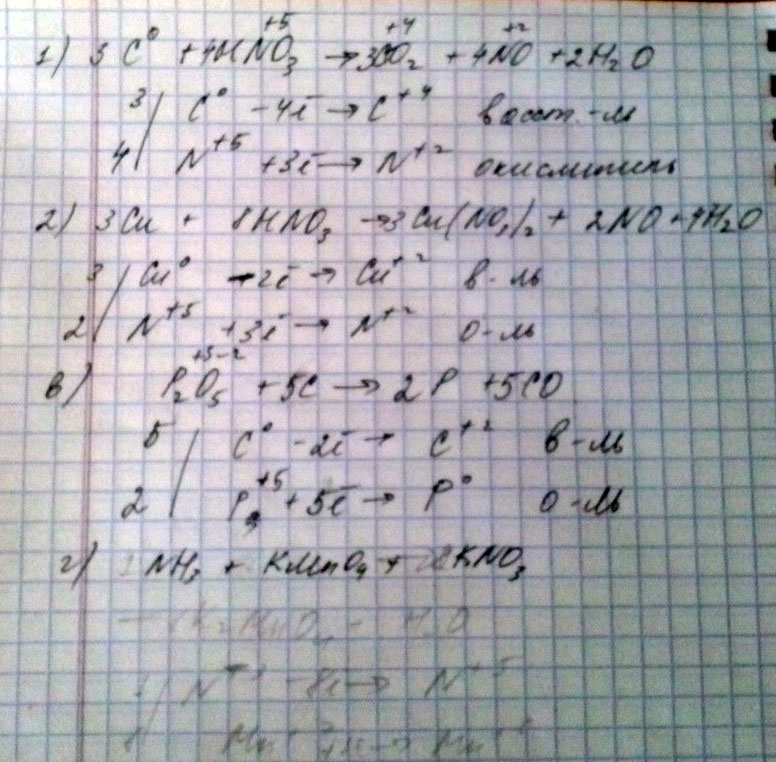 +5 +4 +2
1) 3 C⁰ + 4HNO₃ → 3CO₂ + 4NO + 2H₂O
3 / C⁰ - 4ē → C⁺⁴ восст.-ль
4 / N⁺⁵ + 3ē → N⁺² окислитель
2) 3Cu + 8HNO₃ → 3Cu(NO₃)₂ + 2NO + 4H₂O
3 / Cu⁰ - 2ē → Cu⁺² в-ль
2 / N⁺⁵ + 3ē → N⁺² о-ль
+5 -2
в) P₂O₅ + 5C → 2P + 5CO
5 / C⁰ - 2ē → C⁺² в-ль
2 / P⁺⁵ + 5ē → P⁰ о-ль
г) NH₃ + KMnO₄ + KNO₃
K₂MnO₄ + H₂O
N - 8ē → N⁺⁵
Mn → Mn